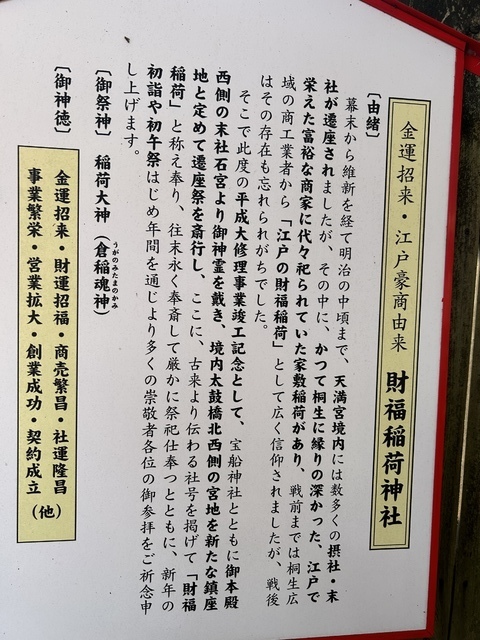 金運招来・江戸豪商由来 財福稲荷神社
〔由緒〕
幕末から維新を経て明治の中頃まで、天満宮境内には数多くの摂社・末
社が遷座されましたが、その中に、かつて桐生に縁りの深かった、江戸で
栄えた富裕な商家に代々祀られていた家敷稲荷があり、戦前までは桐生広
域の商工業者から「江戸の財福稲荷」として広く信仰されましたが、戦後
はその存在も忘れられがちでした。
そこで此度の平成大修理事業竣工記念として、宝船神社とともに御本殿
西側の末社石宮より御神霊を戴き、境内太鼓橋北西側の宮地を新たな鎮座
地と定めて遷座祭を斎行し、ここに、古来より伝わる社号を掲げて「財福
稲荷」と称え奉り、往末永く奉斎して厳かに祭祀仕奉つとともに、新年の
初詣や初午祭はじめ年間を通じより多くの崇敬者各位の御参拝をご祈念申
し上げます。
〔御祭神〕 稲荷大神（倉稲魂神）
うがのみたまのかみ
〔御神徳〕
金運招来・財運招福・商売繁昌・社運隆昌
事業繁栄・営業拡大・創業成功・契約成立（他）